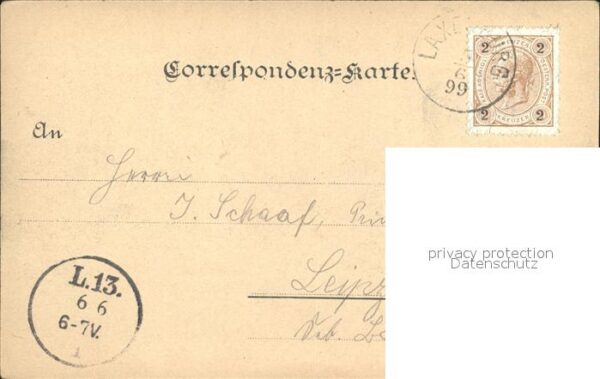 Correspondenz-Karte.
LAXENBURG
6
99
2 2
KREUZER
2 2
An
Herrn
J. Schaaf,
Leipz
privacy protection
Datenschutz
L.13.
6 6
6-7V.
1